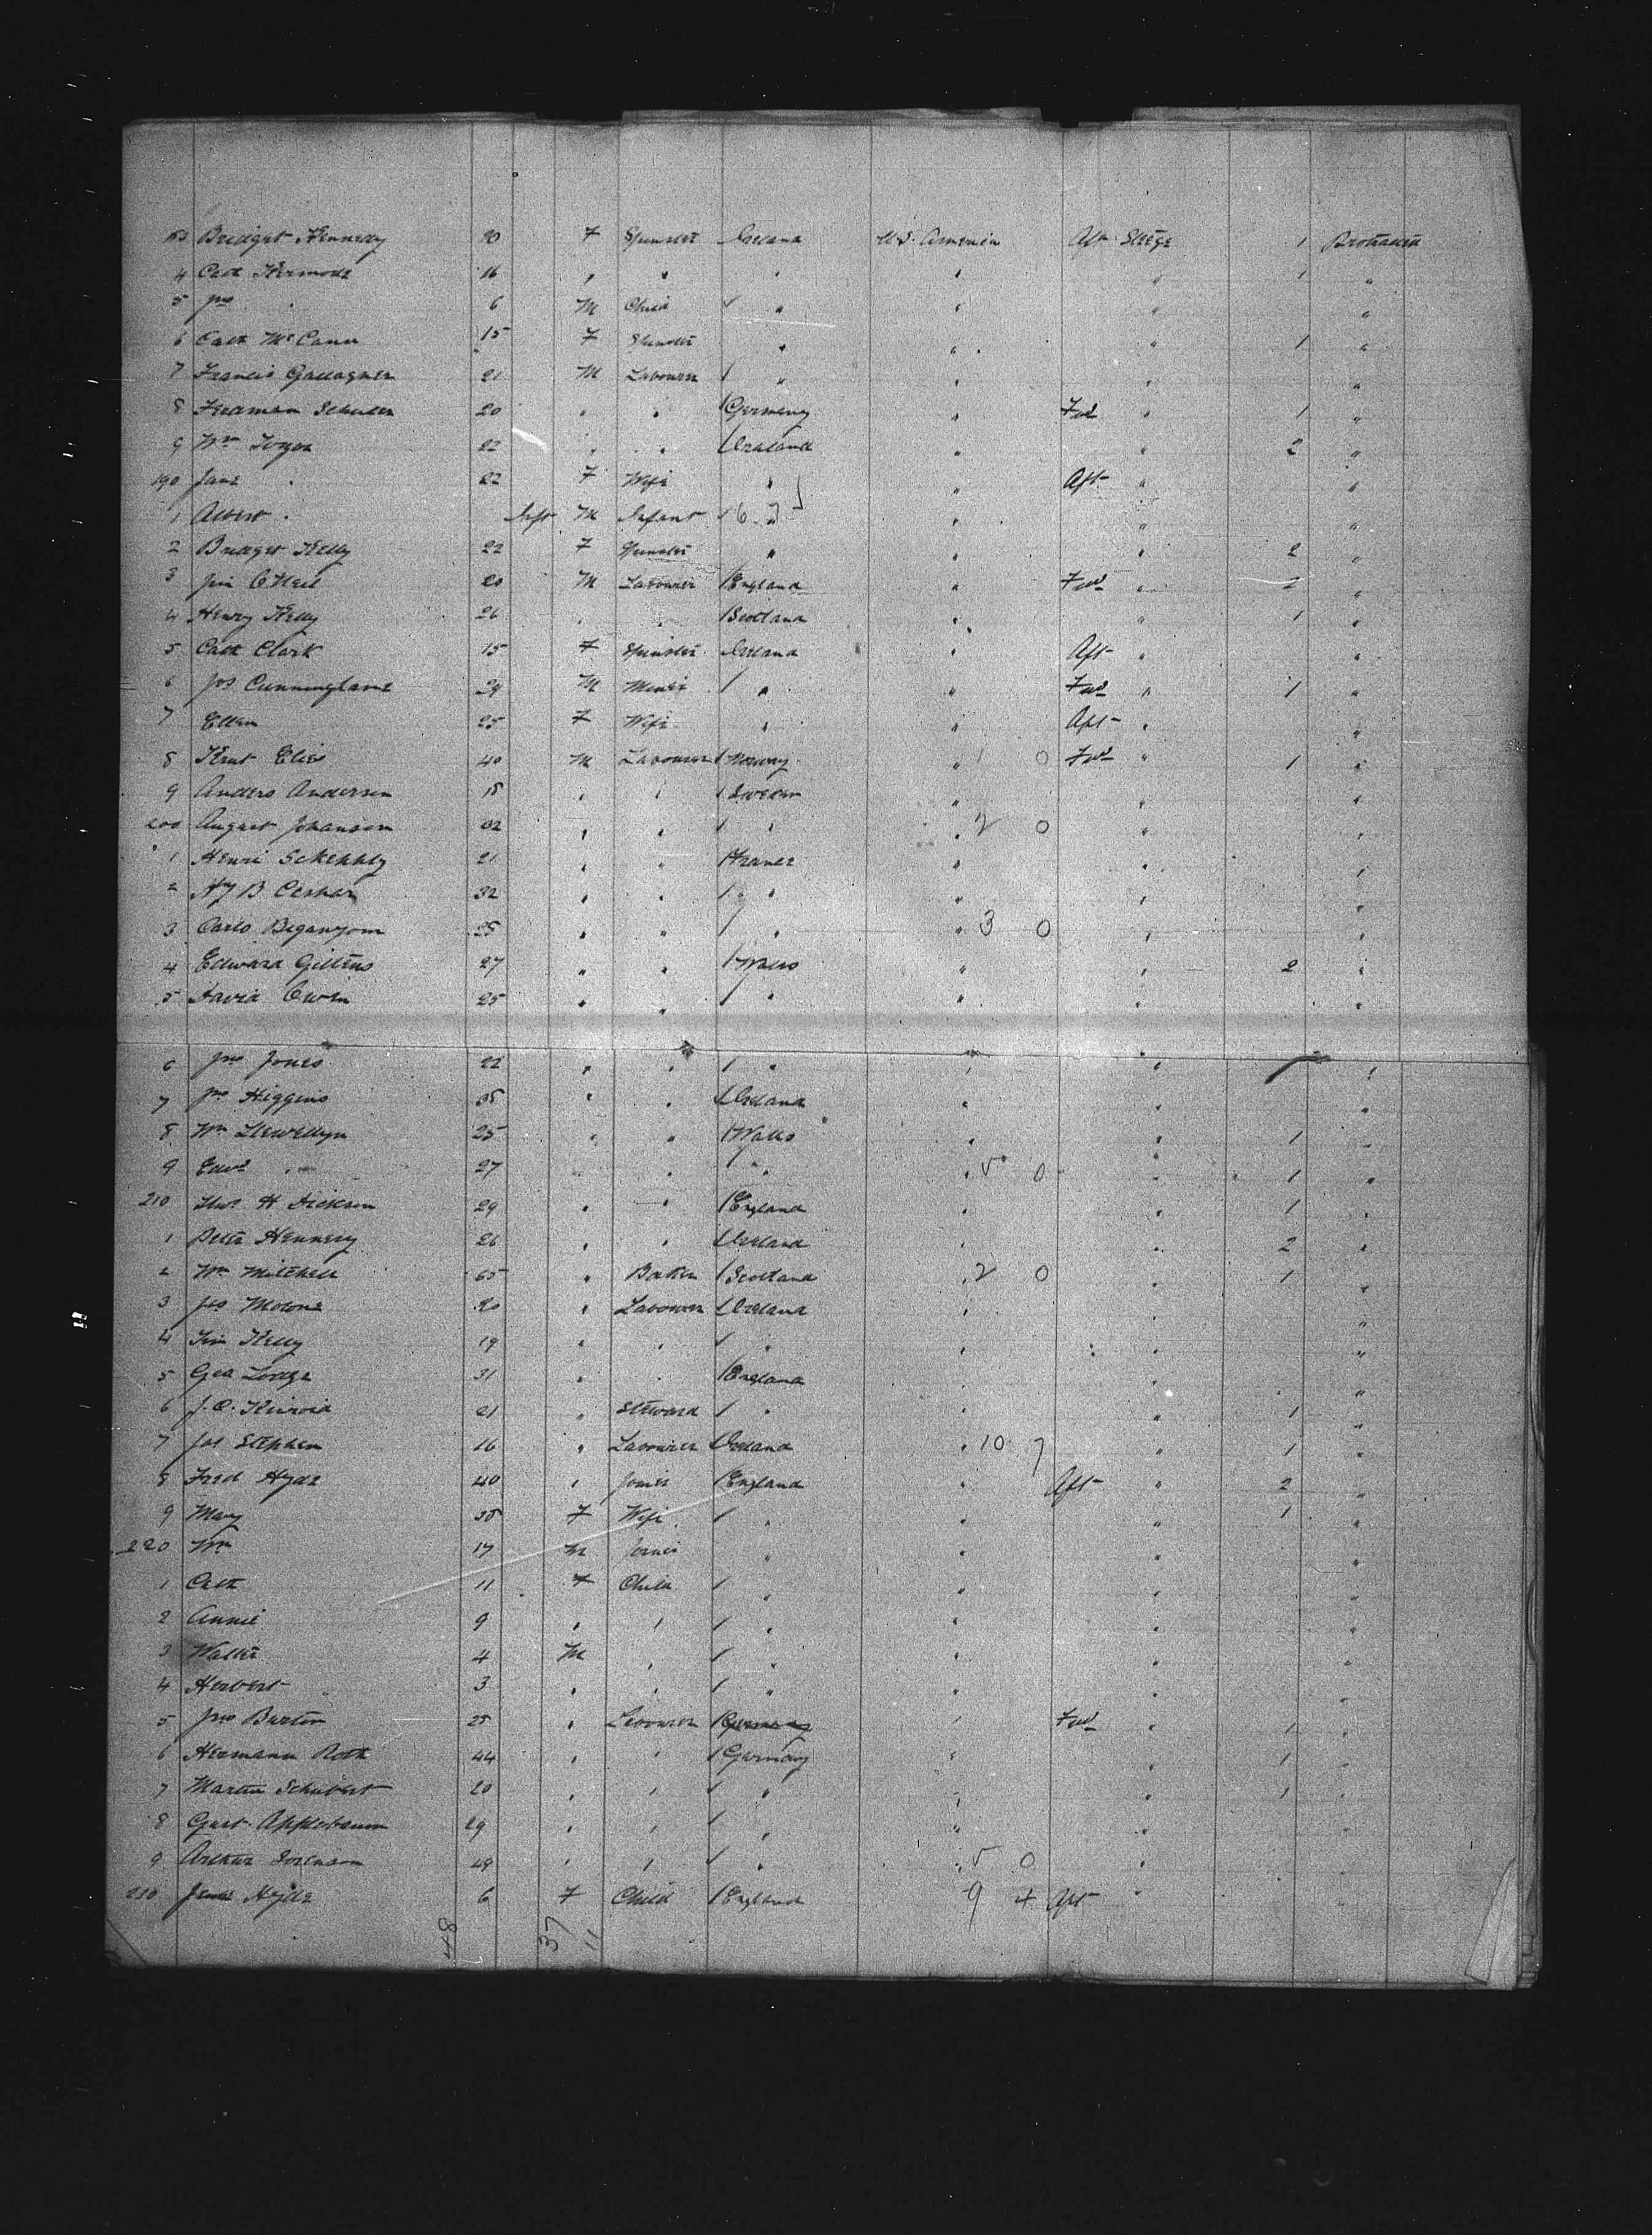 183 Bridget Kennedy 20 F Spinster Ireland U.S. America Aft Steege 1 Protracted
4 Cath Kermode 16 " " " " " 1 "
5 Jno " 6 M Child " " " "
6 Cath McCann 15 F Spinster " " " 1 "
7 Francis Gallagher 21 M Labourer " " " "
8 Ferdman Schuler 20 " " Germany " Fwd " 1 "
9 Wm 22 " " Ireland " " 2 "
190 Jane " 22 F Wife " " Aft " "
1 Albert " Inft M Infant " 6 7 " " "
2 Bridget Kelly 22 F Spinster " " " 2 "
3 Jim O'Neil 20 M Labourer England " Fwd " 2 "
4 Henry Kelly 26 " " Scotland " " 1 "
5 Cath Clark 15 F Spinster Ireland " Aft " "
6 Jos Cunninghame 24 M Miner " " Fwd " 1 "
7 Ellen 25 F Wife " " Aft " "
8 Knut Elies 40 M Labourer Norway " 1 0 Fwd " 1 "
9 Anders Andersen 18 " " Sweden " " "
200 August Johanson 32 " " " " 2 0 " "
1 Henri 21 " " France " " "
2 Hy B 32 " " " " " "
3 Carlo 25 " " " " 3 0 " "
4 Edward Gittins 27 " " Wales " " 2 "
5 David Owen 25 " " " " " "
6 Jno Jones 22 " " " " " "
7 Jno Higgins 35 " " Ireland " " "
8 Wm Llewellyn 25 " " Wales " " 1 "
9 Edwd " 27 " " " " 5 0 " 1 "
210 Thos H Dickson 29 " " England " " 1 "
1 Peter Hennessy 26 " " Ireland " " 2 "
2 Wm Mitchell 65 " Baker Scotland " 2 0 " 1 "
3 Jas Molone 20 " Labourer Ireland " " "
4 Tim Kelly 19 " " " " " "
5 Geo Lodge 31 " " England " " "
6 J.C. 21 " Steward " " " 1 "
7 Jas Stephen 16 " Labourer Ireland " 10 7 " 1 "
8 Fred Hyde 40 " Joiner England " Aft " 2 "
9 Mary 38 F Wife " " " 1 "
220 Wm 17 M Joiner " " " "
1 Cath 11 F Child " " " "
2 Annie 9 " " " " " "
3 Walter 4 M " " " " "
4 Herbert 3 " " " " " "
5 Jno Burton 25 " Labourer Germany " Fwd " 1 "
6 Hermann Roth 44 " " Germany " " 1 "
7 Martin Schubert 20 " " " " " 1 "
8 Gust. Applebaum 29 " " " " "
9 Arthur Sorenson 49 " " " " 5 0 "
230 Jane Hyde 6 F Child England 9 4 Aft "
48 37 11